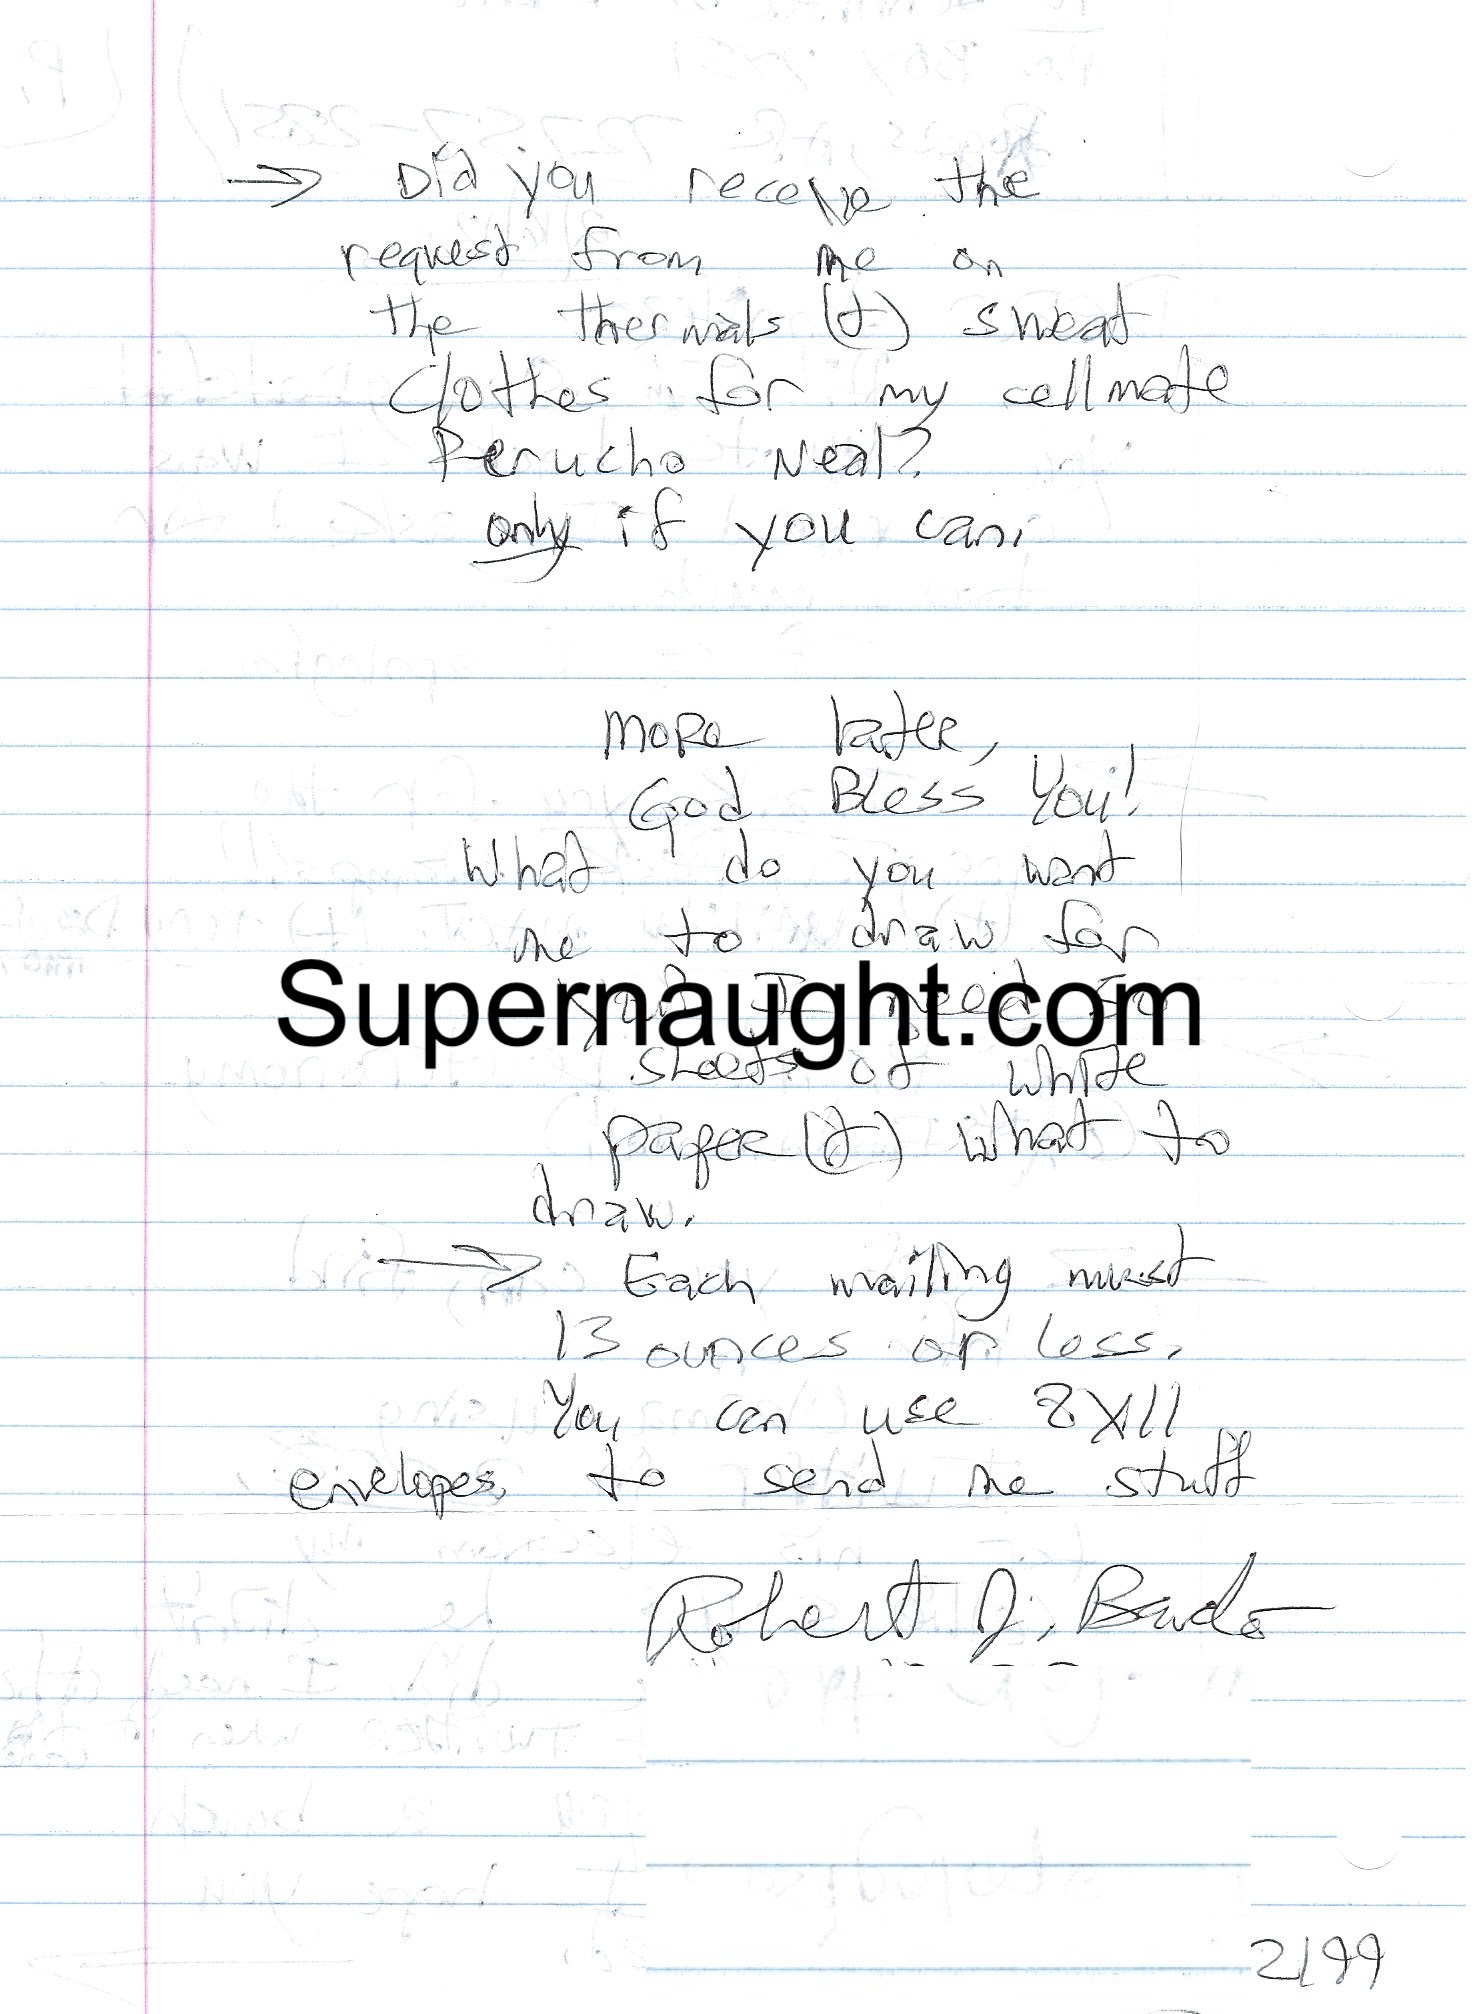 → Did you receive the
request from me on
the thermals (+) sweat
clothes for my cellmate
Perucho Neal?
only if you can.
More later,
God Bless You!
What do you want
me to draw for
I need
Supernaught.com
sheets of white
paper (+) what to
draw.
→ Each mailing must
13 ounces or less.
You can use 8X11
envelopes, to send me stuff
Robert J. Bardo
2/99